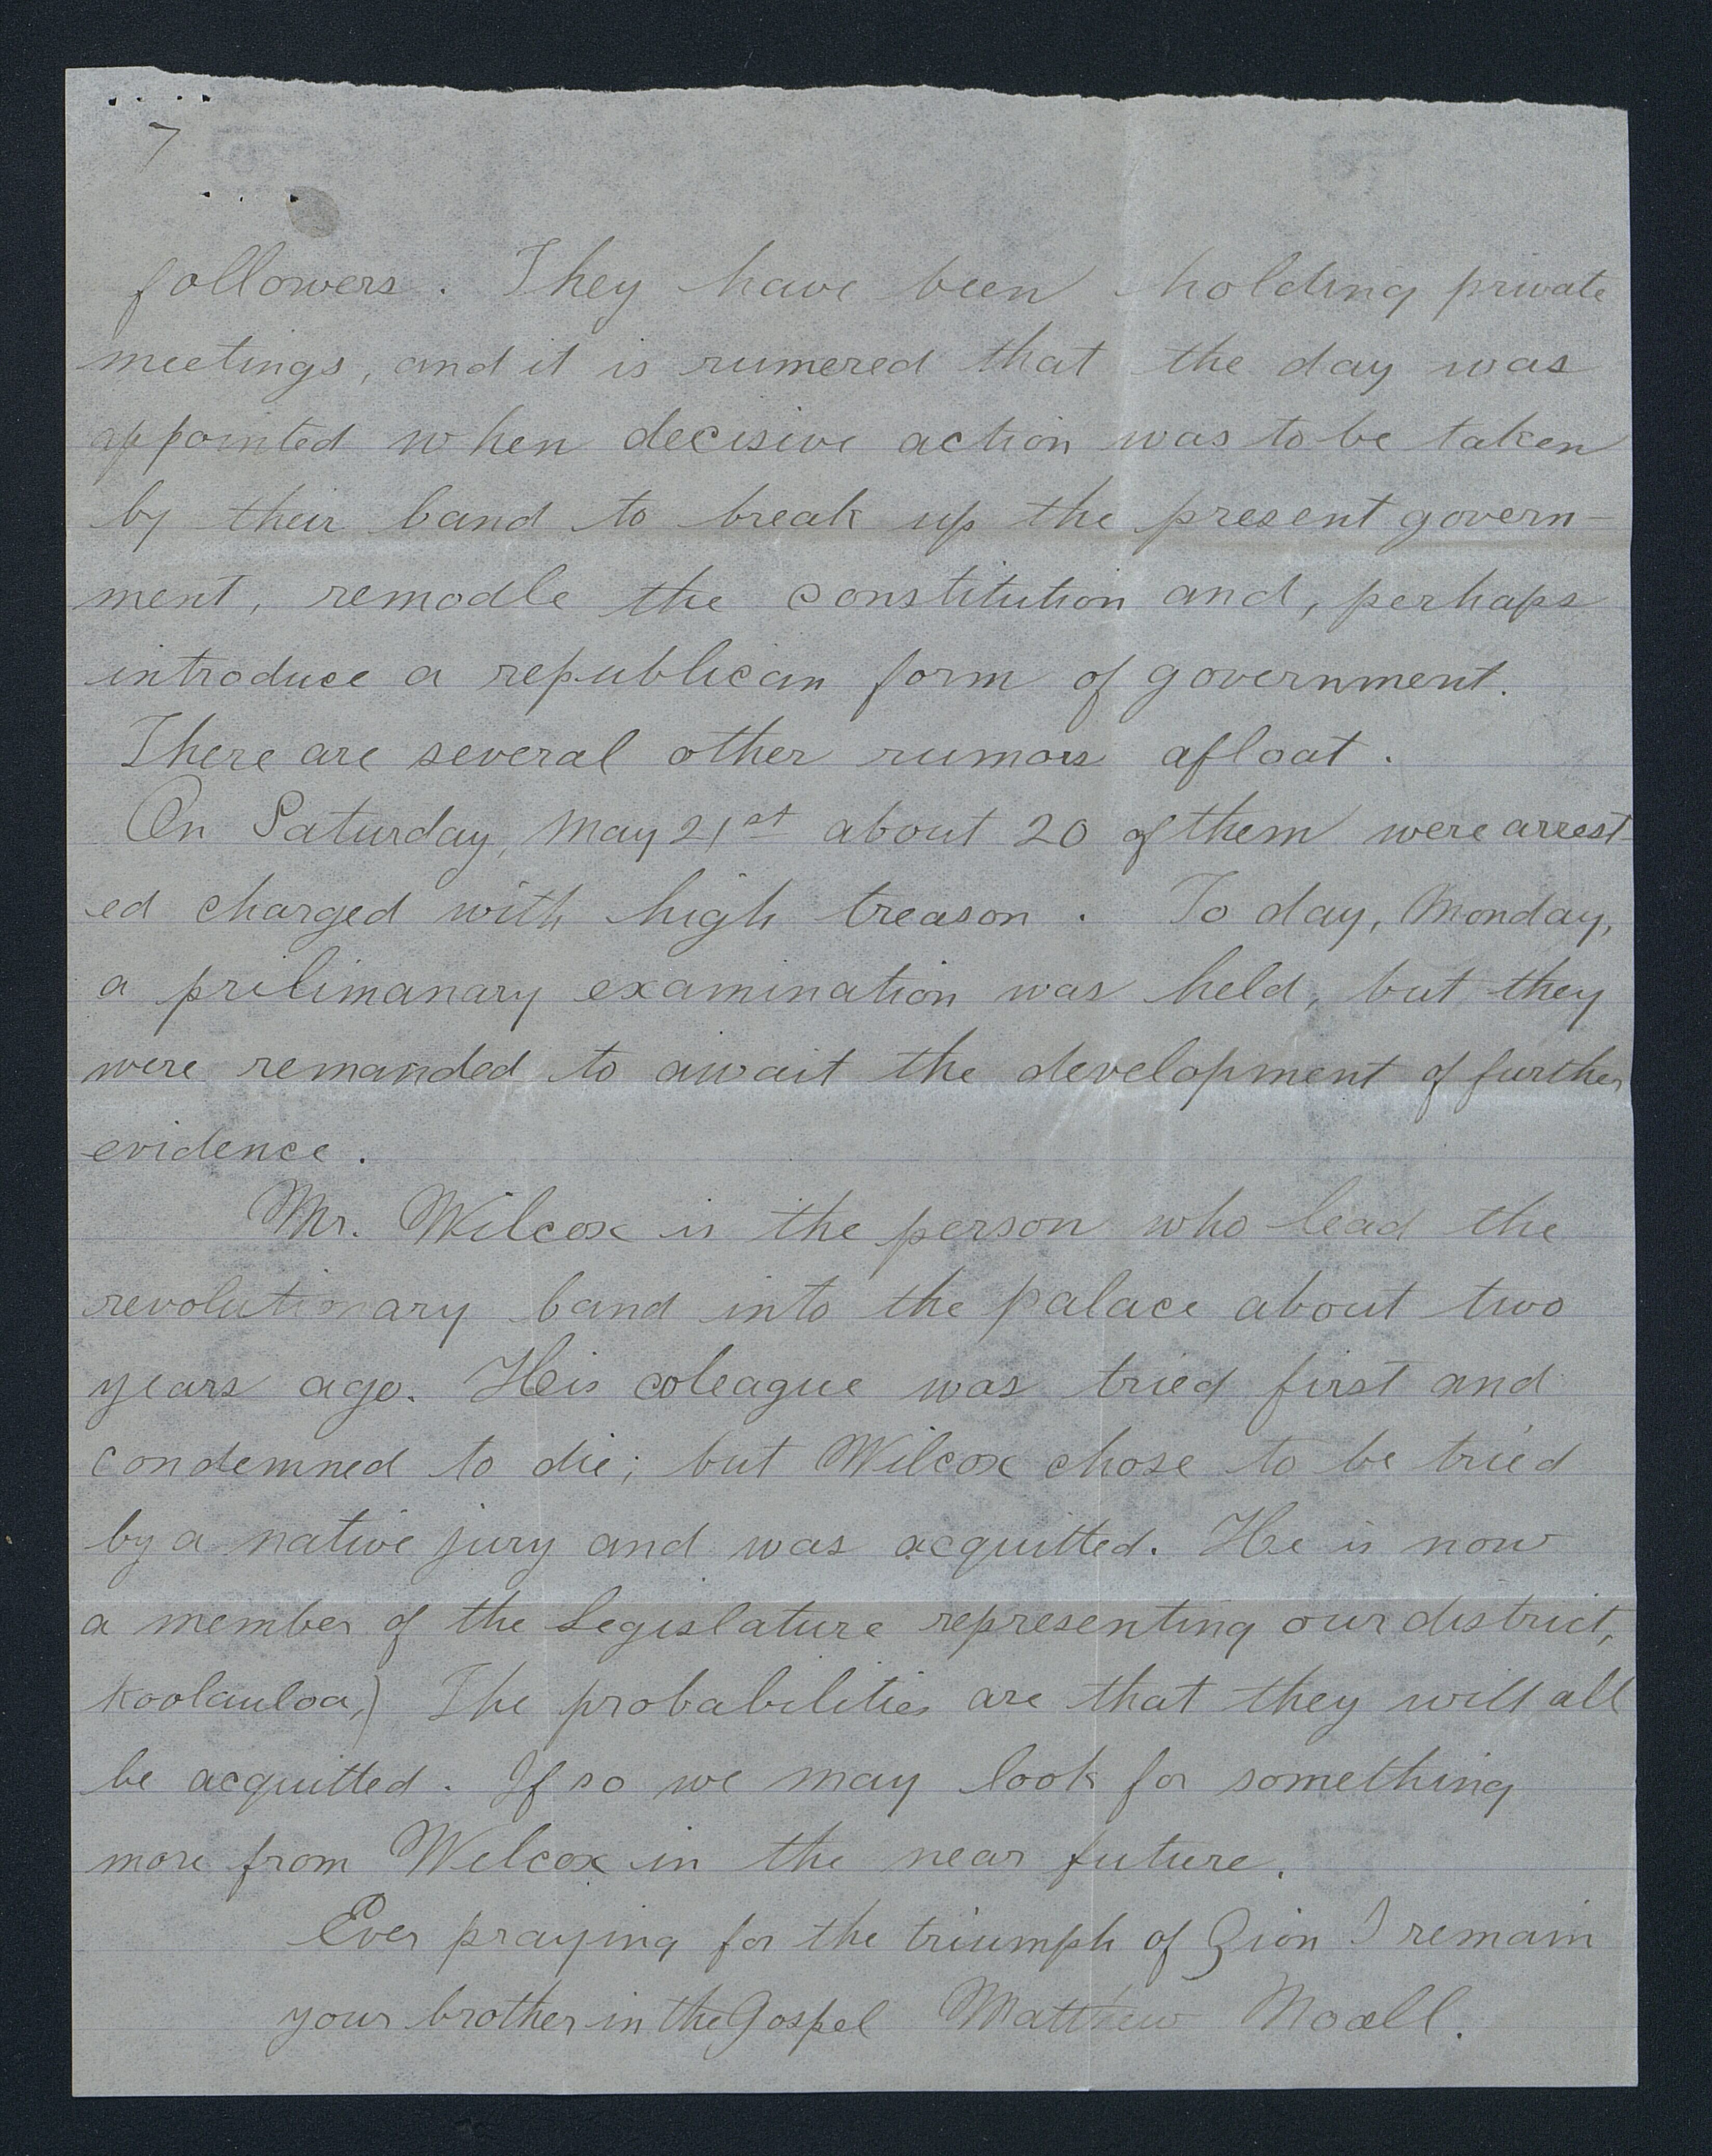 7
followers. They have been holding private
meetings, and it is rumered that the day was
appointed when decisive action was to be taken
by their band to break up the present govern-
ment, remodle the constitution and, perhaps
introduce a republican form of government.
There are several other rumors afloat.
On Saturday, May 21st about 20 of them were arrest-
ed charged with high treason. To day, Monday,
a prilimanary examination was held, but they
were remanded to await the development of further
evidence.
Mr. Wilcox is the person who lead the
revolutionary band into the palace about two
years ago. His coleague was tried first and
condemned to die; but Wilcox chose to be tried
by a native jury and was acquitted. He is now
a member of the Legislature representing our district,
Koolauloa,) The probabilities are that they will all
be acquitted. If so we may look for something
more from Wilcox in the near future.
Ever praying for the triumph of Zion I remain
your brother in the Gospel Matthew Noall.